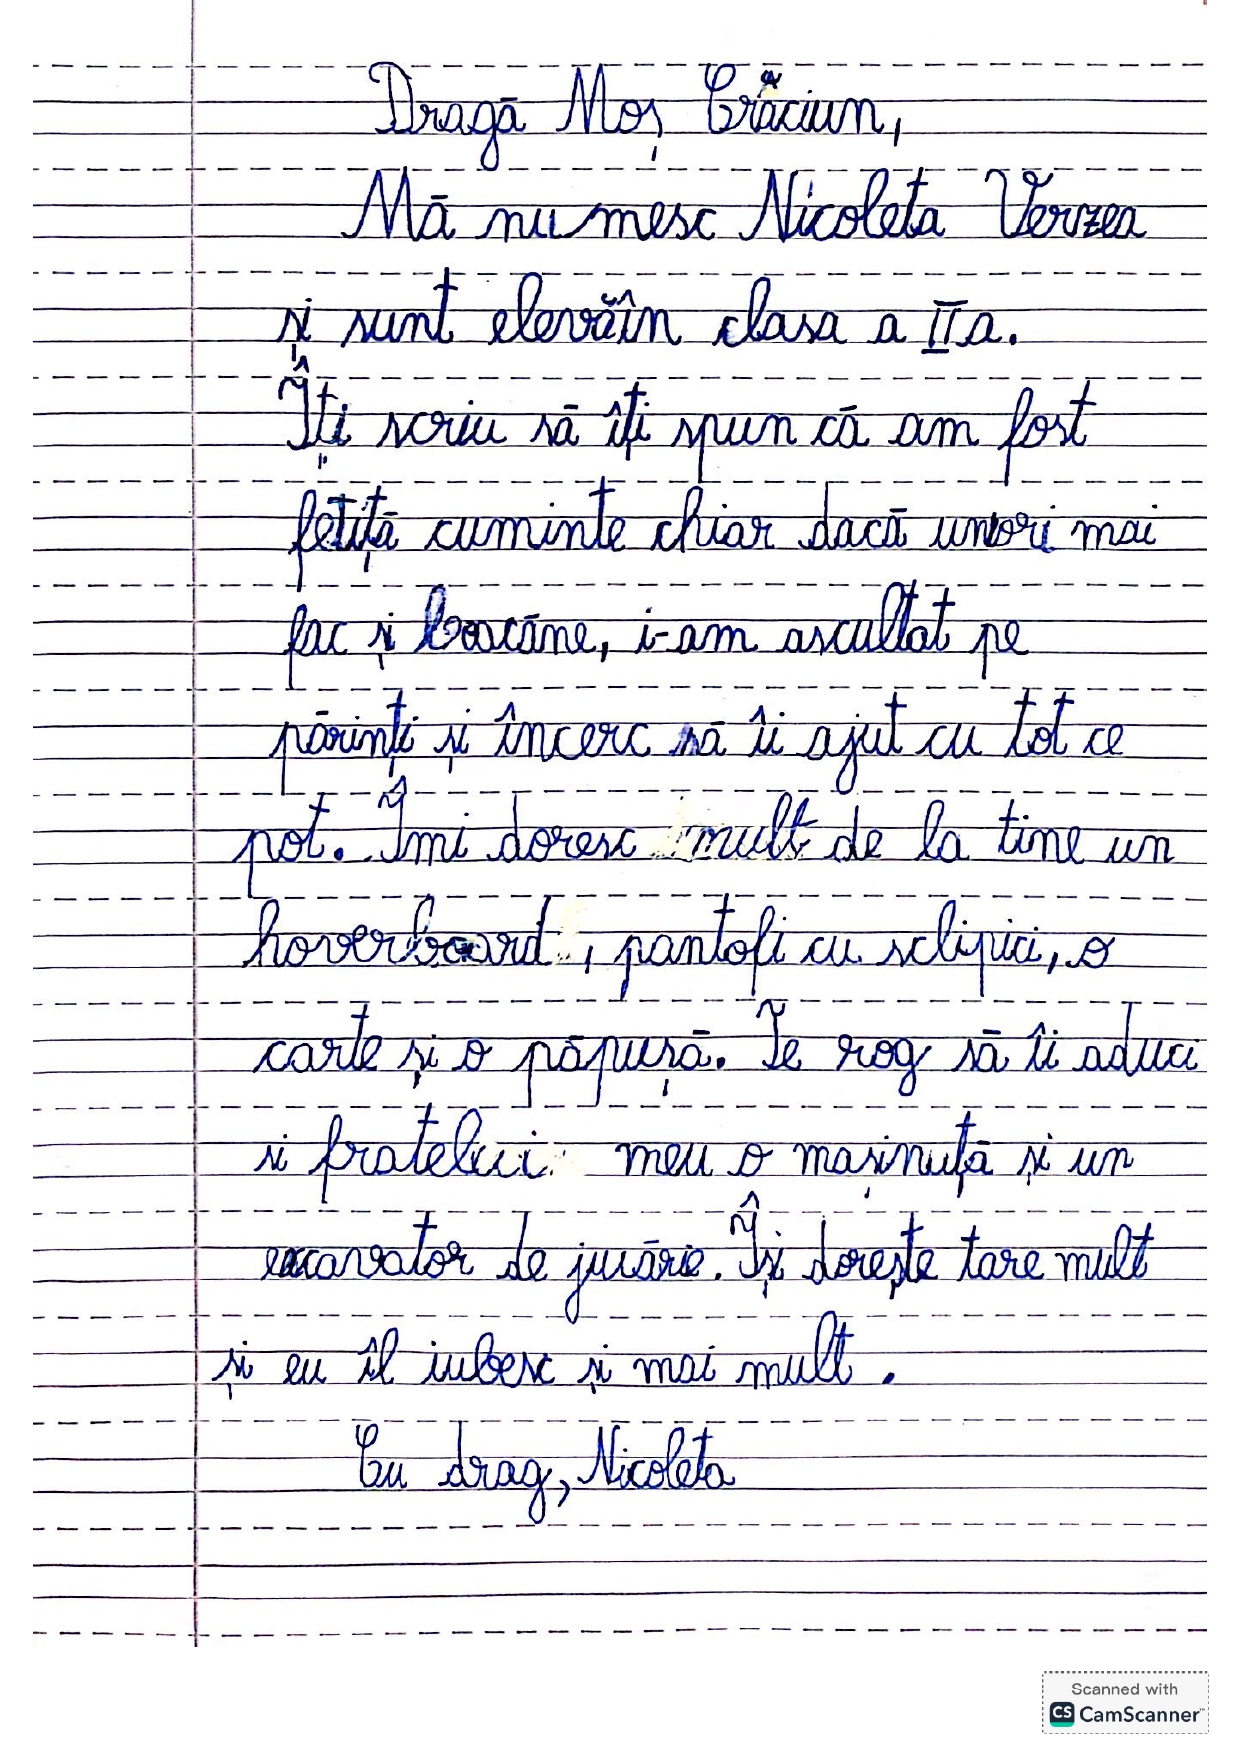 Dragă Moș Crăciun,
Mă numesc Nicoleta Verzea
și sunt elevă în clasa a II a.
Îți scriu să îți spun că am fost
fetiță cuminte chiar dacă uniori mai
fac și boacăne, i-am ascultat pe
părinți și încerc să îi ajut cu tot ce
pot. Îmi doresc mult de la tine un
hoverboard, pantofi cu sclipici, o
carte și o păpușă. Te rog să îi aduci
si fratelui meu o mașinuță și un
excavator de jucărie. Își dorește tare mult
și eu îl iubesc și mai mult.
Cu drag, Nicoleta
Scanned with
CS CamScanner